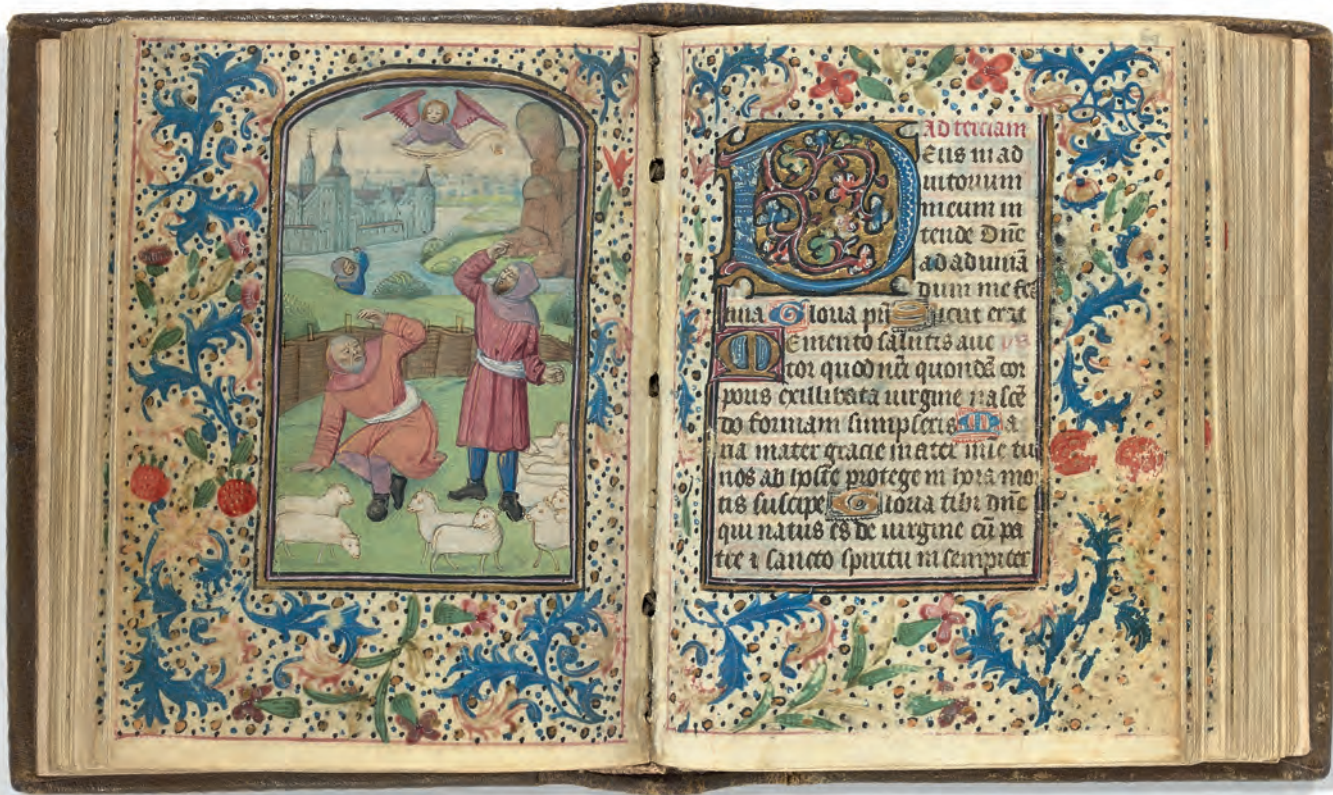 Ad terciam
Deus in ad
iutorium
meum in
tende Dn̄e
ad adiuuā
dum me fes
tina Gloria pr̄i Sicut erat
Memento salutis auc ys
tor quod nr̄i quondā cor
poris exillibata uirgine nascē
do formam sumpseris Ma
ria mater gracie mater mie tu
nos ab hoste protege in hora mor
tis suscipe Gloria tibi dn̄e
qui natus es de uirgine cū pa
tre ⁊ sancto spiritu in sempiter